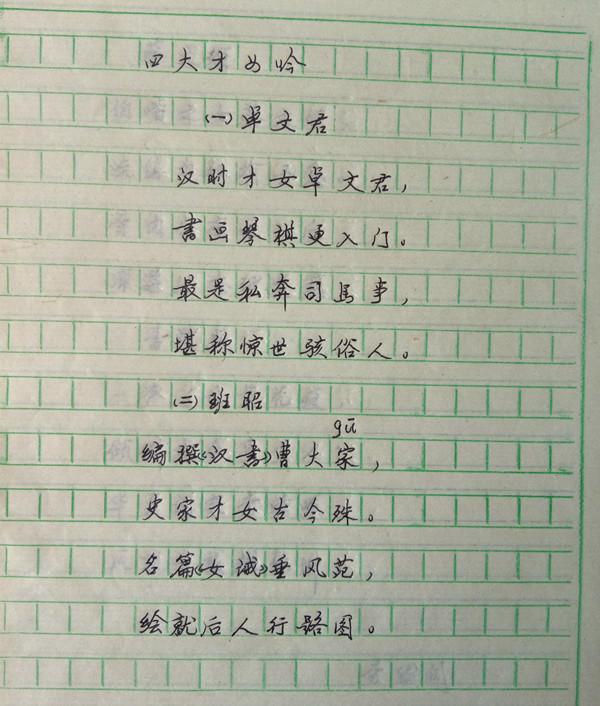 四大才女吟
(一)卓文君
汉时才女卓文君，
書画琴棋更入门。
最是私奔司馬事，
堪称惊世骇俗人。
(二)班昭
gū
编撰《汉書》曹大家，
史家才女古今殊。
名篇《女诫》垂风范，
绘就后人行路图。